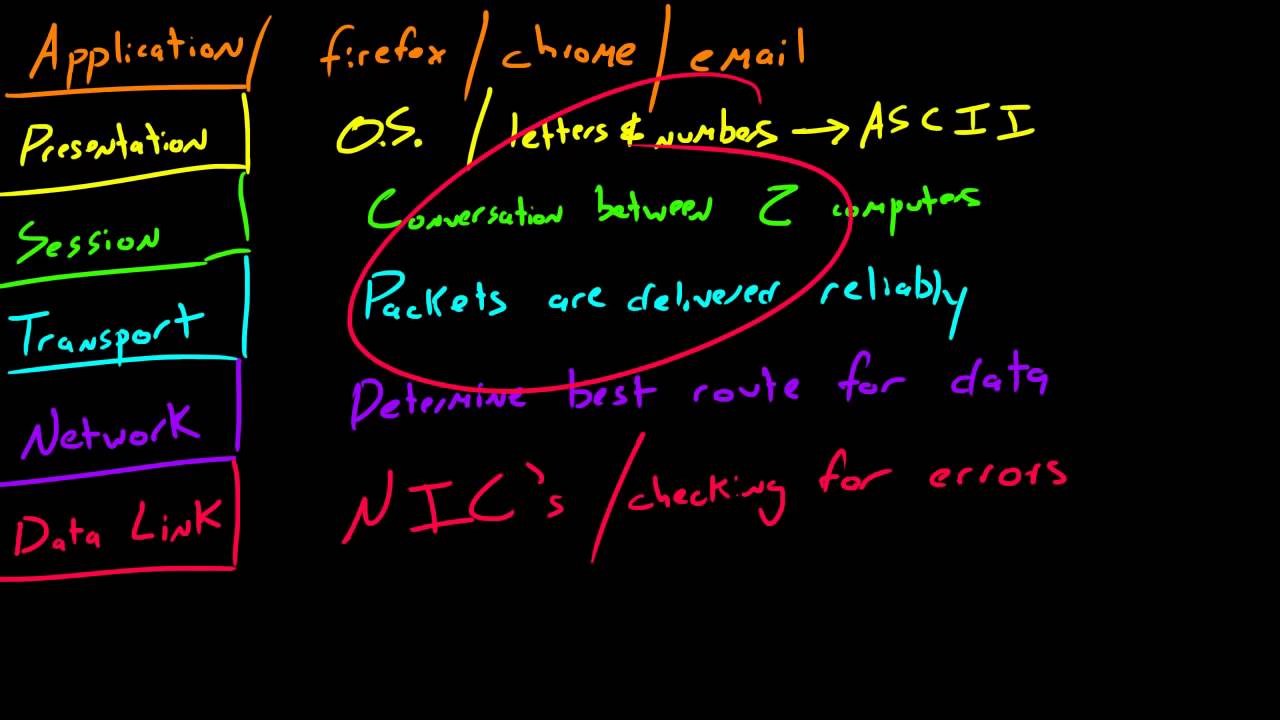 Application / firefox / chrome / email
Presentation O.S. / letters & numbers → ASCII
Session Conversation between 2 computers
Transport Packets are delivered reliably
Network Determine best route for data
Data Link NIC's / checking for errors